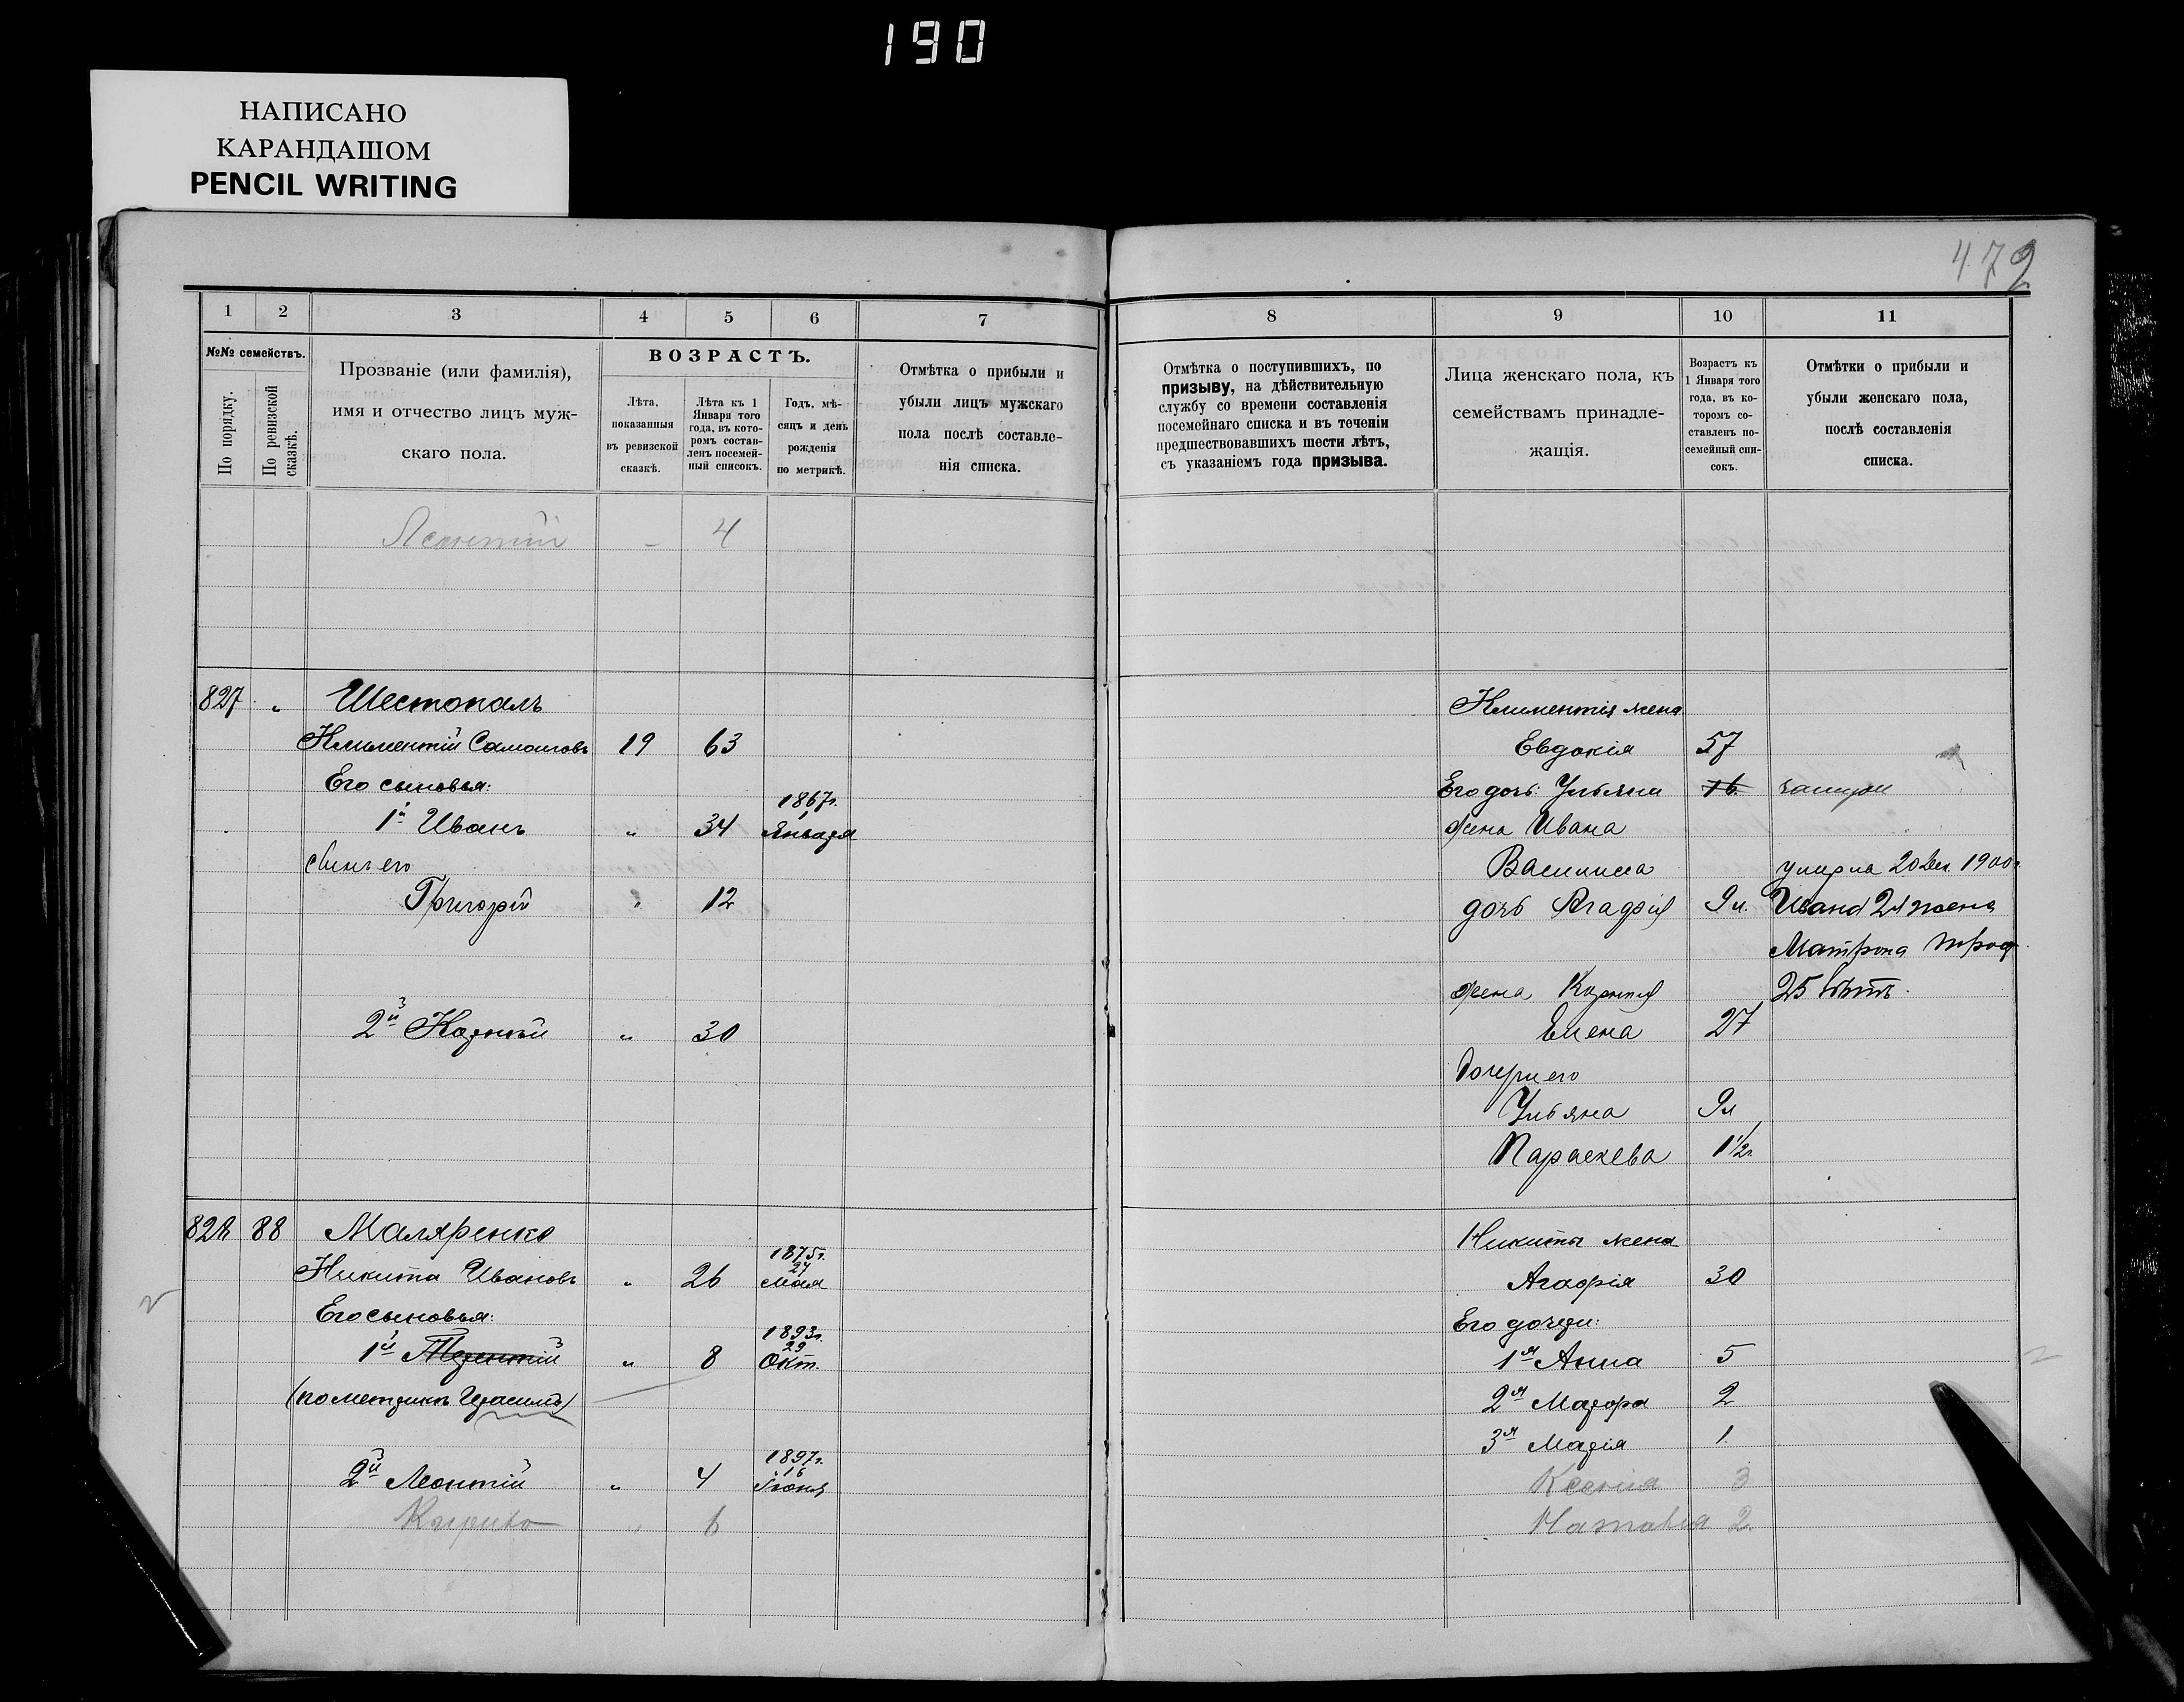 190
НАПИСАНО
КАРАНДАШОМ
PENCIL WRITING
472
1 2 3 4 5 6 7 8 9 10 11
№№ семействъ.
По порядку.
По ревизской сказкѣ.
Прозваніе (или фамилія),
имя и отчество лицъ муж-
скаго пола.
ВОЗРАСТЪ.
Лѣта,
показанныя
въ ревизской
сказкѣ.
Лѣта къ 1
Января того
года, въ кото-
ромъ состав-
ленъ посемей-
ный списокъ.
Годъ, мѣ-
сяцъ и день
рожденія
по метрикѣ.
Отмѣтка о прибыли и
убыли лицъ мужскаго
пола послѣ составле-
нія списка.
Отмѣтка о поступившихъ, по
призыву, на дѣйствительную
службу со времени составленія
посемейнаго списка и въ теченіи
предшествовавшихъ шести лѣтъ,
съ указаніемъ года призыва.
Лица женскаго пола, къ
семействамъ принадле-
жащія.
Возрастъ къ
1 Января того
года, въ ко-
торомъ со-
ставленъ по-
семейный спи-
сокъ.
Отмѣтки о прибыли и
убыли женскаго пола,
послѣ составленія
списка.
Леонтій - 4
827 " Шестопалъ
Климентій 19 63
Его сыновья:
1й Иванъ " 34 1867г. 1 Января
сынъ его
Григорій " 12
2й Корнѣй " 30
Климентія жена
Евдокія 57
Его дочь: Ульяна 16 замуж
жена Ивана
Василиса умерла 20 Дек. 1900г.
дочь Агафія 9 л. Ивана 2я жена
Матрона
жена Корнія 25 лѣтъ.
Елена 27
дочери его
Ульяна 9л
Параскева 1½г.
828 88 Маляренко
Никита Ивановъ " 26 1875г. 27 Мая
Его сыновья:
1й Терентій " 8 1893г. 29 Окт.
(по метрикѣ Герасимъ)
2й Леонтій " 4 1897г. 16 Іюня
Кирило " 6
Никиты жена
Агафія 30
Его дочери:
1я Анна 5
2я Мавра 2
3я Марія 1
Ксенія 3
Наталія 2